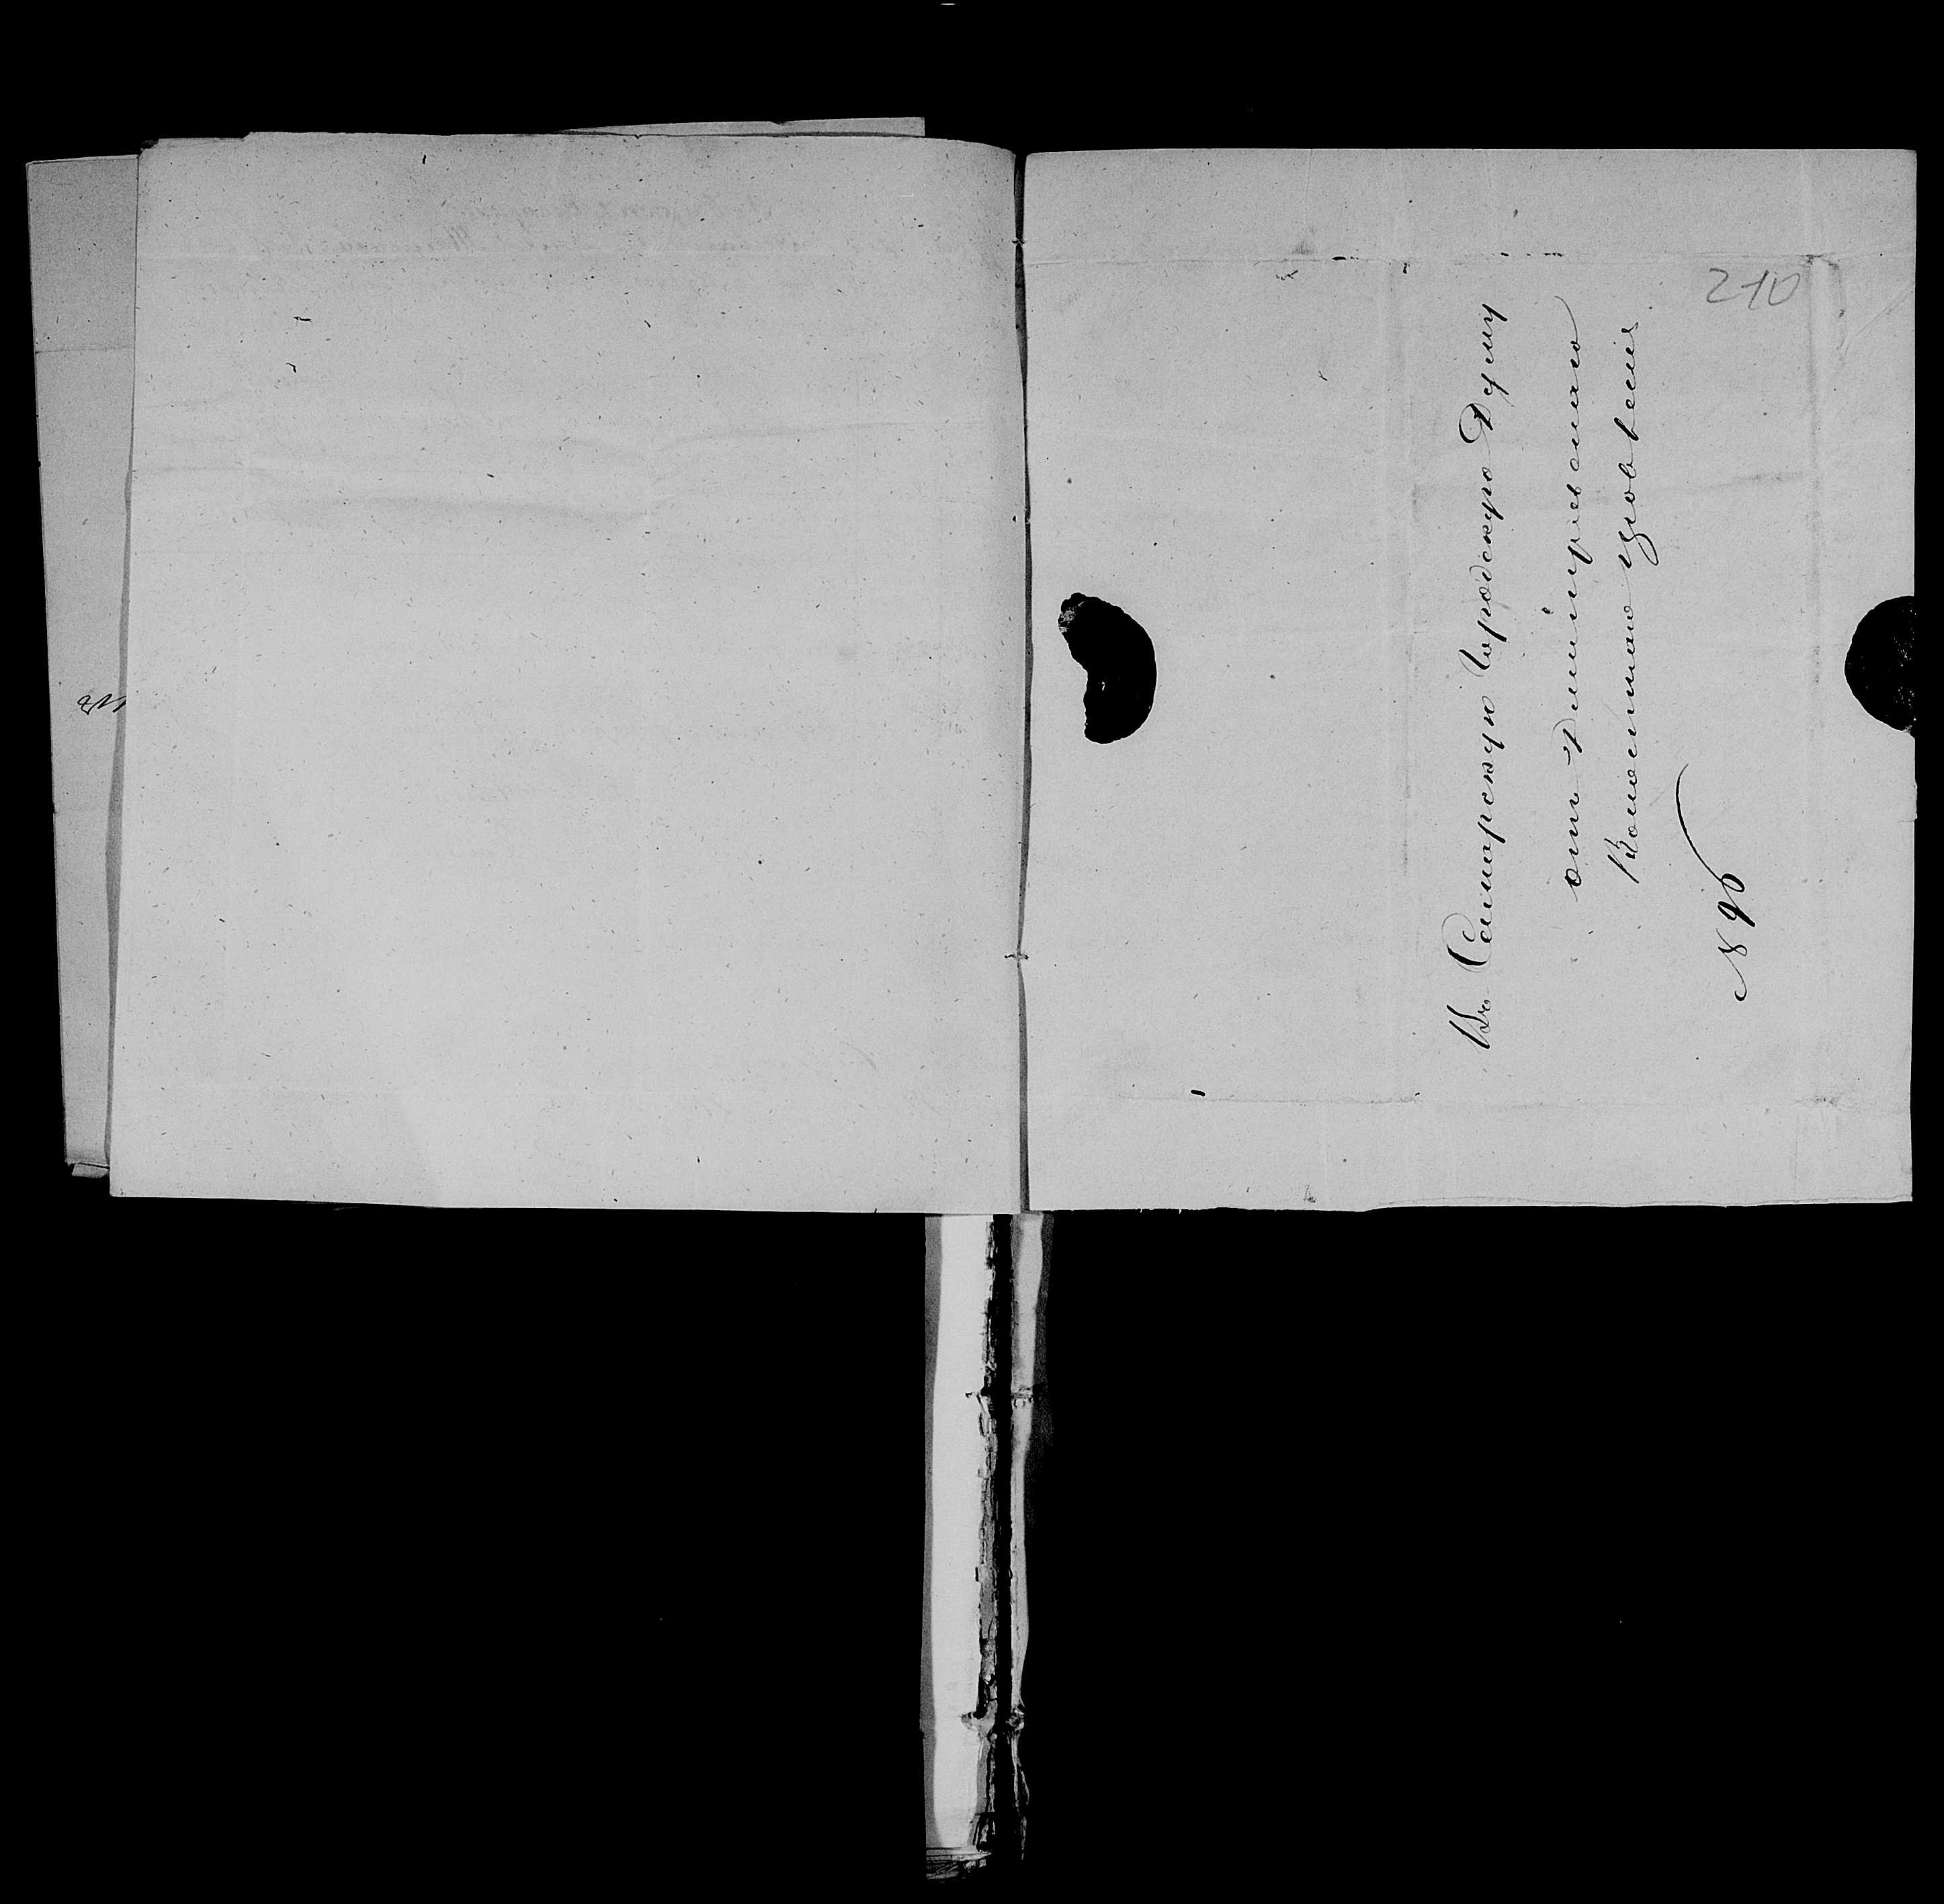 210
Въ Самарскую Городскую Думу
отъ Димитріевскаго
Волостнаго
№ 96